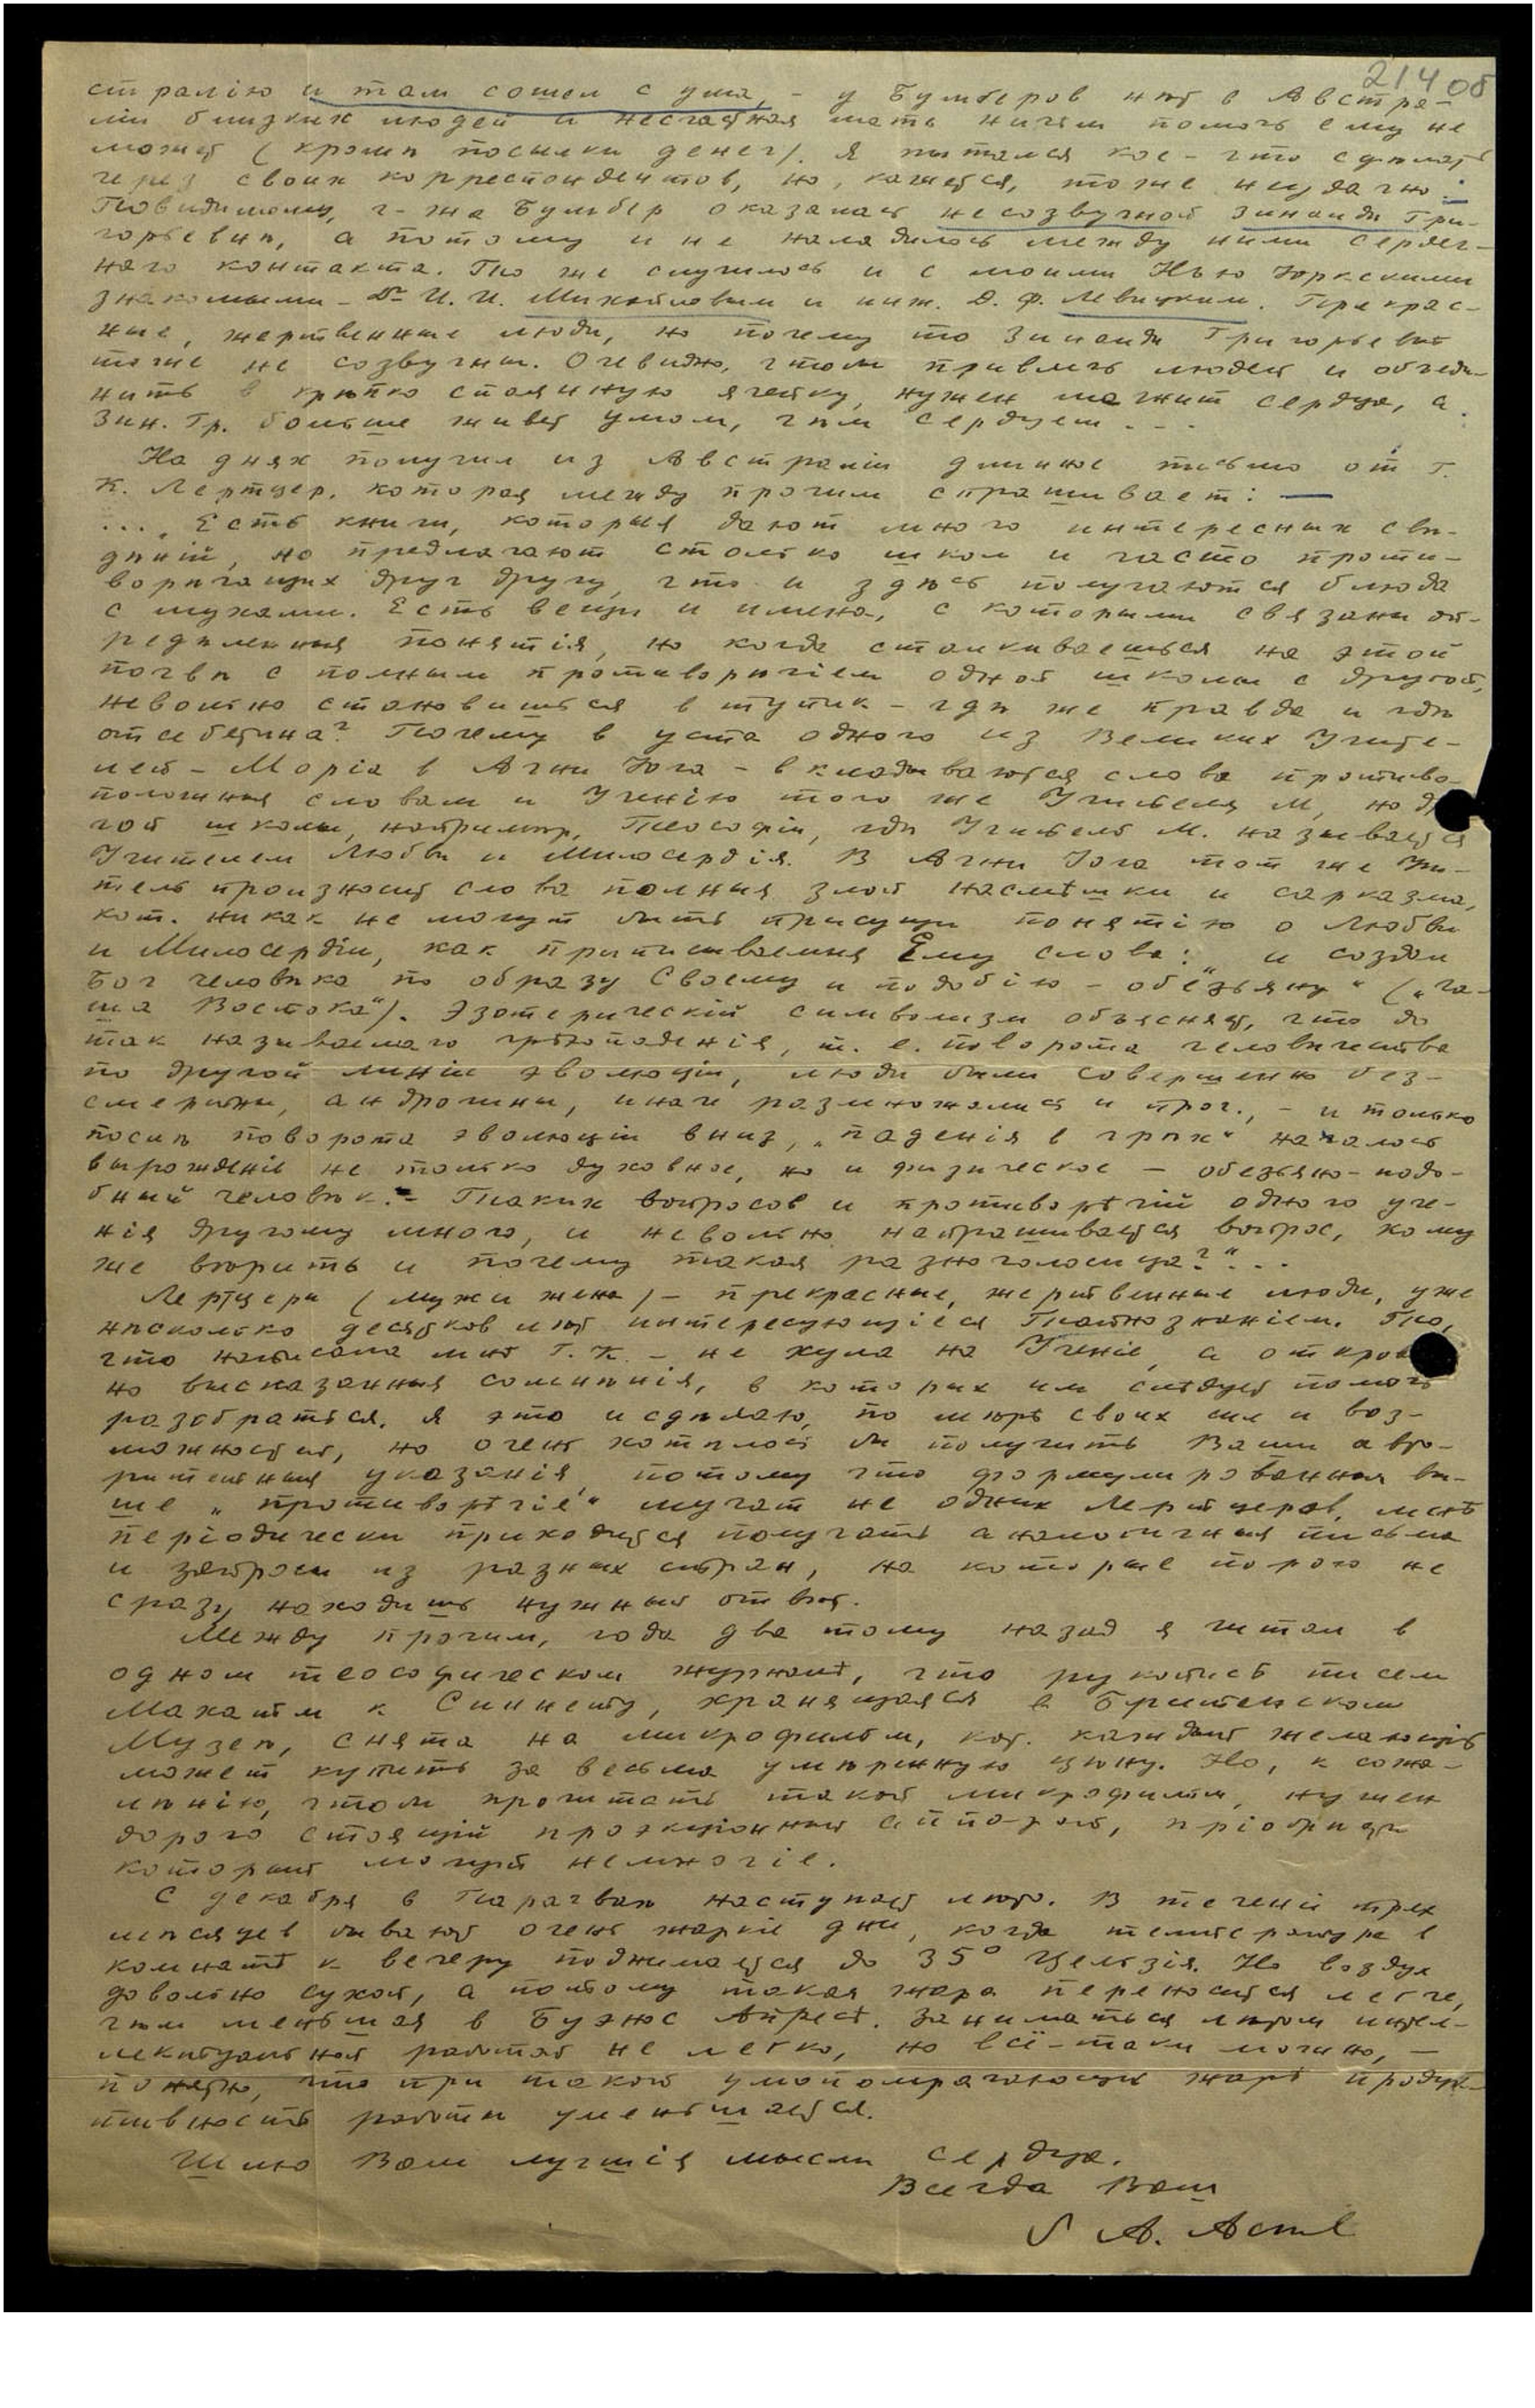 214об
стралію и там сошел с ума, – у Бумберов нѣт в Австра-
ліи близких людей и несчастная мать ничѣм помочь ему не
может (кромѣ посылки денег). Я пытался кое-что сдѣлать
через своих корреспондентов, но, кажется, тоже неудачно.
Повидимому, г-жа Бумбер оказалась несозвучной Зинаидѣ Гри-
горьевнѣ, а потому и не наладилось между ними сердеч-
наго контакта. То же случилось и с моими Нью Іоркскими
знакомыми – Dr И. И. Михайловым и инж. Д. Ф. Левицким. Прекрас-
ные, жертвенные люди, но почему то Зинаидѣ Григорьевнѣ
тоже не созвучны. Очевидно, чтобы привлечь людей и объеди-
нить в крѣпко спаянную ячейку, нужен магнит сердца, а
Зин. Гр. больше живет умом, чѣм сердцем...
На днях получил из Австраліи длинное письмо от Г.
К. Лертцер, которая между прочим спрашивает: –
... „Есть книги, которыя дают много интересных свѣ-
дѣній, но предлагают столько школ и часто проти-
ворѣчащих друг другу, что и здѣсь получаются блюда
с мухами. Есть вещи и имена, с которыми связаны оп-
редѣленныя понятія, но когда сталкиваешься на этой
почвѣ с полным противорѣчіем одной школы с другой,
невольно становишься в тупик – гдѣ же правда и гдѣ
отсебятина? Почему в уста одного из Великих Учите-
лей – Моріа в Агни Іога – вкладываются слова противо-
положныя словам и Ученію того же Учителя М, но др
гой школы, напримѣр, Теософіи, гдѣ Учитель М. называется
Учителем Любви и Милосердія. В Агни Іога тот же Учи-
тель произносит слова полныя злой насмѣшки и сарказма,
кот. никак не могут быть присущи понятію о Любви
и Милосердіи, как приписываемыя Ему слова: „и создал
Бог человѣка по образу Своему и подобію – обезьяну“ („Ча-
ша Востока“). Эзотерическій символизм объясняет, что до
так называемаго грѣхопаденія, т. е. поворота человѣчества
по другой линіи эволюціи, люди были совершенно без-
смертны, андрогины, иначе размножались и проч., – и только
послѣ поворота эволюціи вниз, „паденія в грѣх“ началось
вырожденіе не только духовное, но и физическое – обезьяно-подо-
бный человѣк. – Таких вопросов и противорѣчій одного уче-
нія другому много, и невольно напрашивается вопрос, кому
же вѣрить и почему такая разноголосица?“...
Лертцеры (муж и жена) – прекрасные, жертвенные люди, уже
нѣсколько десятков лѣт интересующіеся Тайнознаніем. То,
что написала мнѣ Г. К. – не хула на Ученіе, а открове
но высказанныя сомнѣнія, в которых им слѣдует помочь
разобраться. Я это и сдѣлаю, по мѣрѣ своих сил и воз-
можностей, но очень хотѣлось бы получить Ваши авто-
ритетныя указанія, потому что формулированныя вы-
ше „противорѣчія“ мучат не одних Лертцеров. Мнѣ
періодически приходится получать аналогичныя письма
и запросы из разных стран, на которые порою не
сразу находишь нужный отвѣт.
Между прочим, года два тому назад я читал в
одном теософическом журналѣ, что рукопись писем
Махатм к Синнету, хранящаяся в Британском
Музеѣ, снята на микрофильм, кот. каждый желающій
может купить за весьма умѣренную цѣну. Но, к сожа-
лѣнію, чтобы прочитать такой микрофильм, нужен
дорого стоящій проэкціонный аппарат, пріобрѣсти
который могут немногіе.
С декабря в Парагваѣ наступает лѣто. В теченіи трех
мѣсяцев бывают очень жаркіе дни, когда температура в
комнатѣ к вечеру поднимается до 35° Цельзія. Но воздух
довольно сухой, а потому такая жара переносится легче,
чѣм меньшая в Буэнос Айресѣ. Заниматься лѣтом интел-
лектуальной работой не легко, но всё-таки можно, –
понятно, что при такой умопомрачающей жарѣ продук-
тивность работы уменьшается.
Шлю Вам лучшія мысли сердца.
Всегда Ваш
А. Асеев